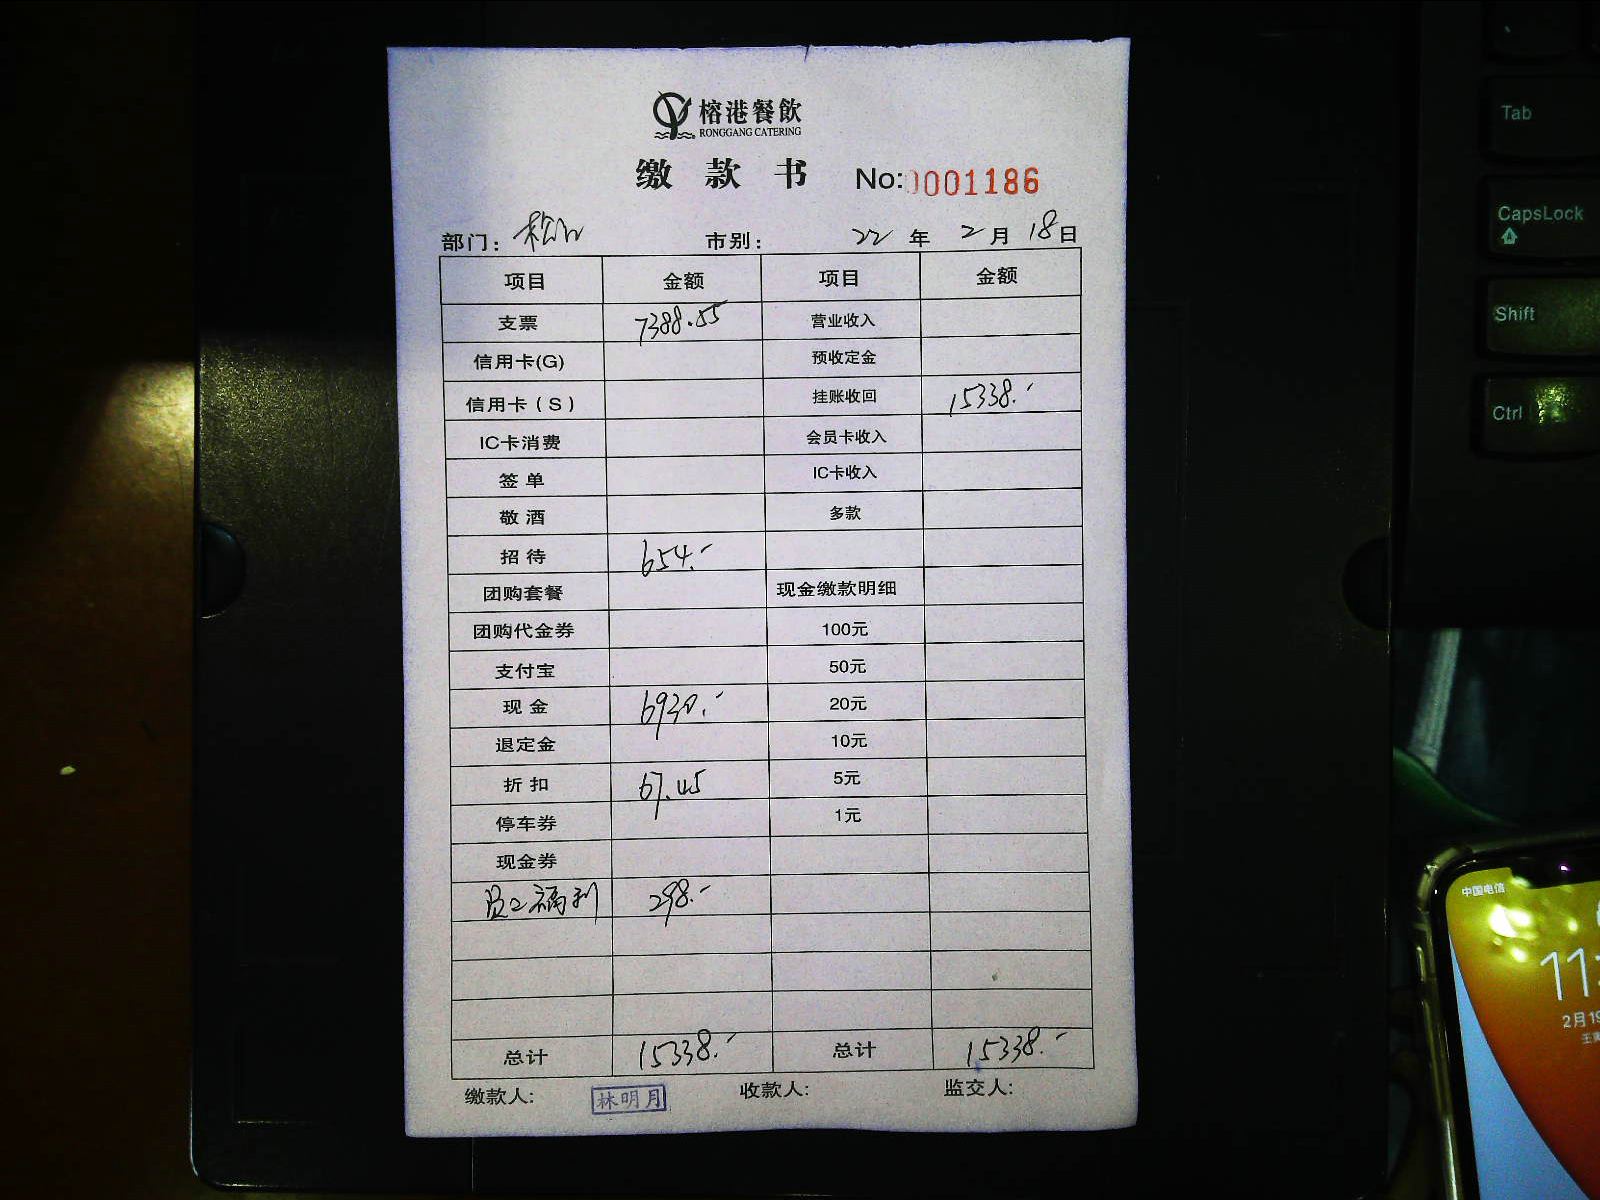 榕港餐飲
RONGGANG CATERING
缴款书 No:0001186
部门: 松山 市别: 22年2月18日
项目 金额 项目 金额
支票 7388.55 营业收入
信用卡(G) 预收定金
信用卡(S) 挂账收回 15338.-
IC卡消费 会员卡收入
签单 IC卡收入
敬酒 多款
招待 654.-
团购套餐 现金缴款明细
团购代金券 100元
支付宝 50元
现金 6930.- 20元
退定金 10元
折扣 67.45 5元
停车券 1元
现金券
员工福利 298.-
总计 15338.- 总计 15338.-
缴款人: 林明月 收款人: 监交人:
Tab
CapsLock
Shift
Ctrl
中国电信
11:
2月19